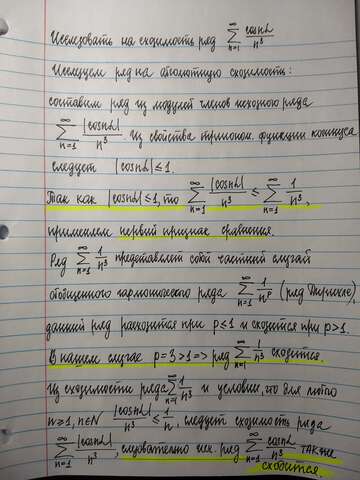 Исследовать на сходимость ряд $\sum_{n=1}^{\infty} \frac{\cos n\alpha}{n^3}$
Исследуем ряд на абсолютную сходимость:
составим ряд из модулей членов исходного ряда
$\sum_{n=1}^{\infty} \frac{|\cos n\alpha|}{n^3}$. Из свойства тригоном. функции косинуса
следует $|\cos n\alpha| \leq 1$.
Так как $|\cos n\alpha| \leq 1$, то $\sum_{n=1}^{\infty} \frac{|\cos n\alpha|}{n^3} \leq \sum_{n=1}^{\infty} \frac{1}{n^3}$,
применяем первый признак сравнения.
Ряд $\sum_{n=1}^{\infty} \frac{1}{n^3}$ представляет собой частный случай
обобщенного гармонического ряда $\sum_{n=1}^{\infty} \frac{1}{n^p}$ (ряд Дирихле),
данный ряд расходится при $p \leq 1$ и сходится при $p > 1$.
В нашем случае $p = 3 > 1 \Rightarrow$ ряд $\sum_{n=1}^{\infty} \frac{1}{n^3}$ сходится.
Из сходимости ряда $\sum_{n=1}^{\infty} \frac{1}{n^3}$ и условия, что для любого
$n \geq 1, n \in N$ $\frac{|\cos n\alpha|}{n^3} \leq \frac{1}{n}$, следует сходимость ряда
$\sum_{n=1}^{\infty} \frac{|\cos n\alpha|}{n^3}$, следовательно исх. ряд $\sum_{n=1}^{\infty} \frac{\cos n\alpha}{n^3}$ также
сходится